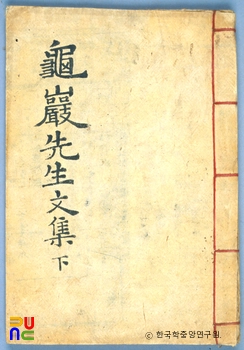 龜巖先生文集 下
PUNC
© 한국학중앙연구원